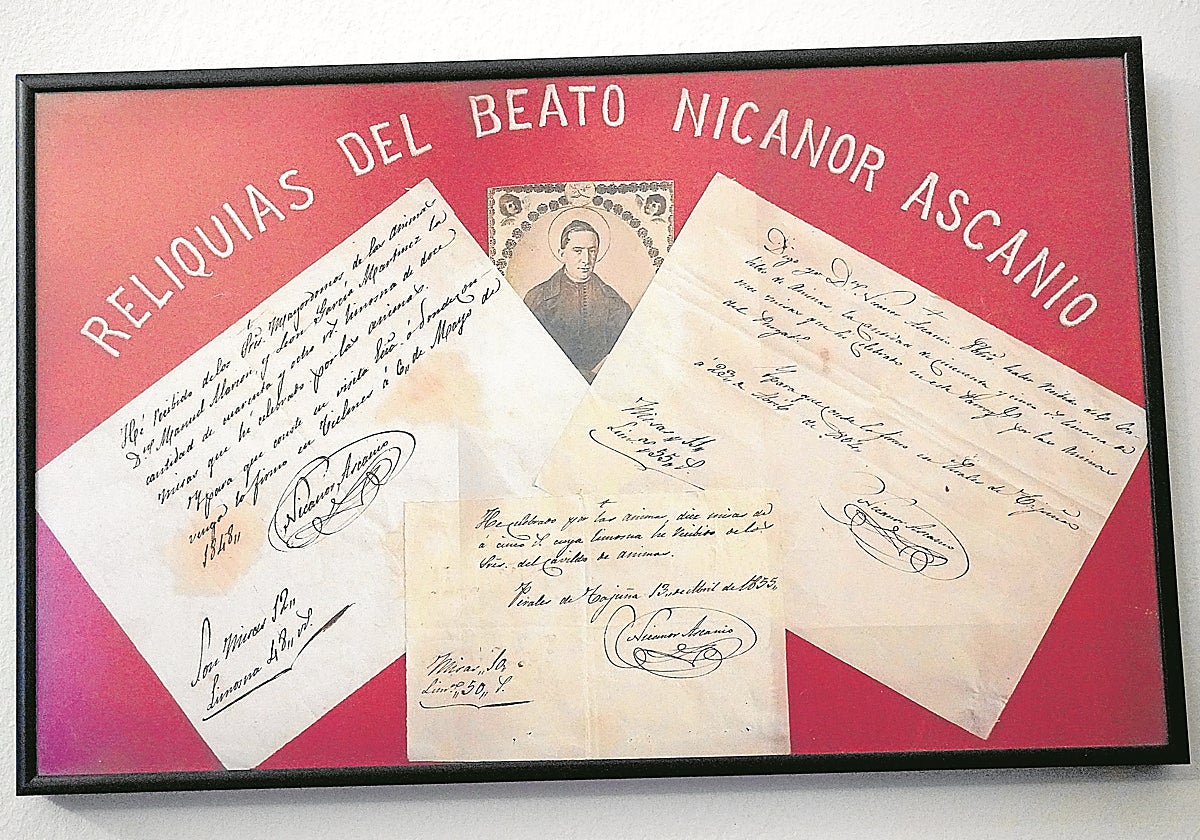 RELIQUIAS DEL BEATO NICANOR ASCANIO
He recibido de los Sres. Mayordomos de las animas
Dn. Manuel Moron y León García Martínez la
cantidad de cuarenta y ocho rs. limosna de doce
misas que hé celebrado por las animas.
Y para que conste en visita Ecca. o donde con
venga lo firmo en Tielmes á 6,, de Mayo de
1848,,
Nicanor Ascanio
Son Misas 12,,
Limosna 48,, rs.
Digo yo Dn. Nicanor Ascanio Pbro. haber recibido del Ca
bildo de Animas la cantidad de cincuenta y cinco rs. limosna de
misas que hé celebrado en esta Parroqa. por las Animas
del Purgato.
Y para que conste lo firmo en Perales de Tajuña
á 23,, de
Nicanor Ascanio
Misas 11
Limna. 55,, rs.
He celebrado por las animas diez misas de
á cinco rs. cuya limosna he recibido de los
Sres. del cavildo de animas.
Perales de Tajuña 13,, de Abril de 1855,,
Nicanor Ascanio
Misas,, 10,
Limna.,, 50,, rs.